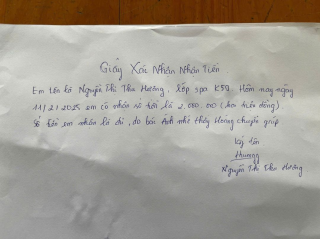 Giấy Xác Nhận Nhận Tiền
Em tên là Nguyễn Thị Thu Hường, lớp spa K59. Hôm nay ngày
11/2/2025 em có nhận số tiền là 2.000.000 (hai triệu đồng).
Số tiền em nhận là do bên Ảnh nhờ thầy Hoàng chuyển giúp
Ký tên
Hương
Nguyễn Thị Thu Hường